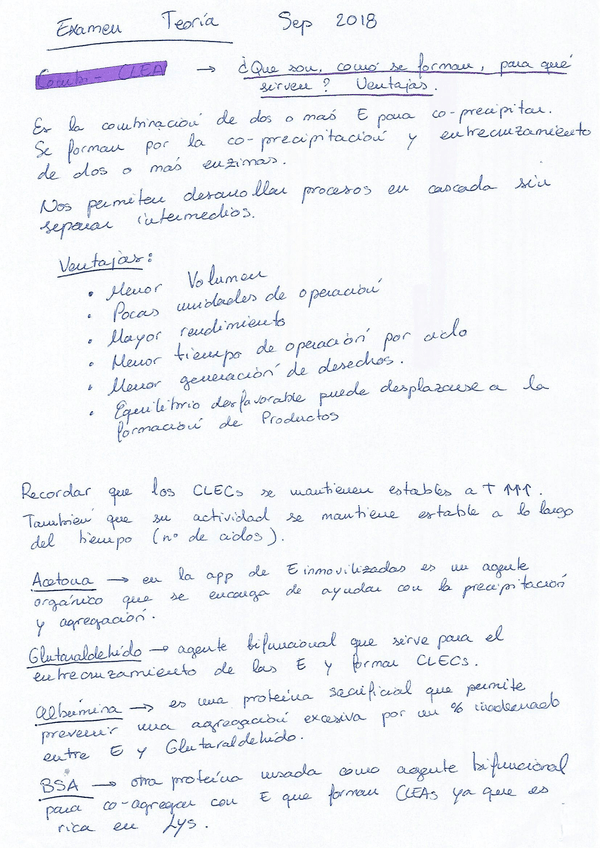 Examen Teoría Sep 2018
Combi-CLEA → ¿Que son, como se forman, para qué
sirven? Ventajas.
Es la combinación de dos o más E para co-precipitar.
Se forman por la co-precipitación y entrecruzamiento
de dos o más enzimas.
Nos permiten desarrollar procesos en cascada sin
separar intermedios.
Ventajas:
• Menor Volumen
• Pocas unidades de operación
• Mayor rendimiento
• Menor tiempo de operación por ciclo
• Menor generación de desechos.
• Equilibrio desfavorable puede desplazarse a la
formación de Productos
Recordar que los CLECs se mantienen estables a T ↑↑↑.
También que su actividad se mantiene estable a lo largo
del tiempo (nº de ciclos).
Acetona → en la app de E inmovilizadas es un agente
orgánico que se encarga de ayudar con la precipitación
y agregación.
Glutaraldehído → agente bifuncional que sirve para el
entrecruzamiento de las E y formar CLECs.
Albúmina → es una proteína sacrificial que permite
prevenir una agregación excesiva por un % inadecuado
entre E y Glutaraldehído.
BSA → otra proteína usada como agente bifuncional
para co-agregar con E que forman CLEAs ya que es
rica en Lys.